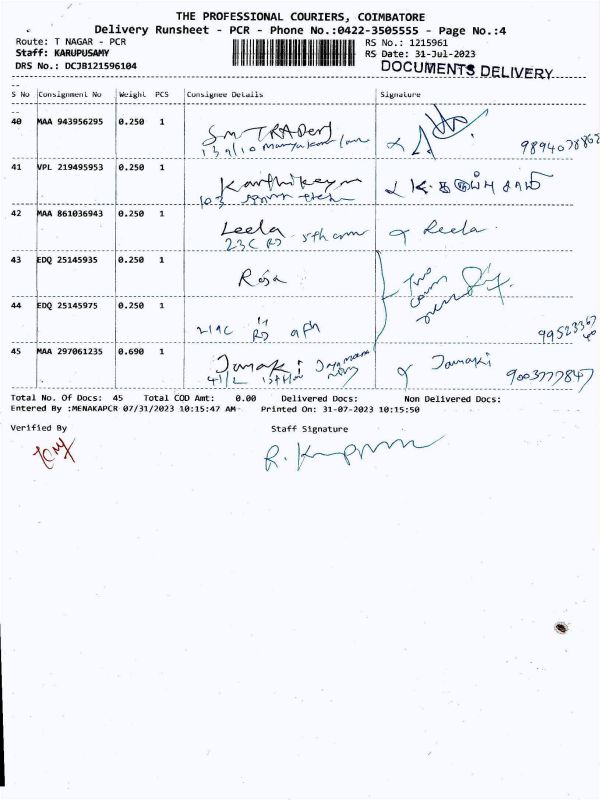 THE PROFESSIONAL COURIERS, COIMBATORE
Delivery Runsheet - PCR - Phone No.:0422-3505555 - Page No.:4
Route: T NAGAR - PCR RS No.: 1215961
Staff: KARUPUSAMY RS Date: 31-Jul-2023
DRS No.: DCJB121596104 DOCUMENTS DELIVERY
S No Consignment No Weight PCS Consignee Details Signature
40 MAA 943956295 0.250 1
SM TRADERS
41 VPL 219495953 0.250 1
Karthikeyan
103
42 MAA 861036943 0.250 1
Leela Leela
23C RD 5th
43 EDQ 25145935 0.250 1
Roja
44 EDQ 25145975 0.250 1
219C RD
45 MAA 297061235 0.690 1
Janaki Janaki
41/2 9003777847
Total No. Of Docs: 45 Total COD Amt: 0.00 Delivered Docs: Non Delivered Docs:
Entered By :MENAKAPCR 07/31/2023 10:15:47 AM- Printed On: 31-07-2023 10:15:50
Verified By Staff Signature